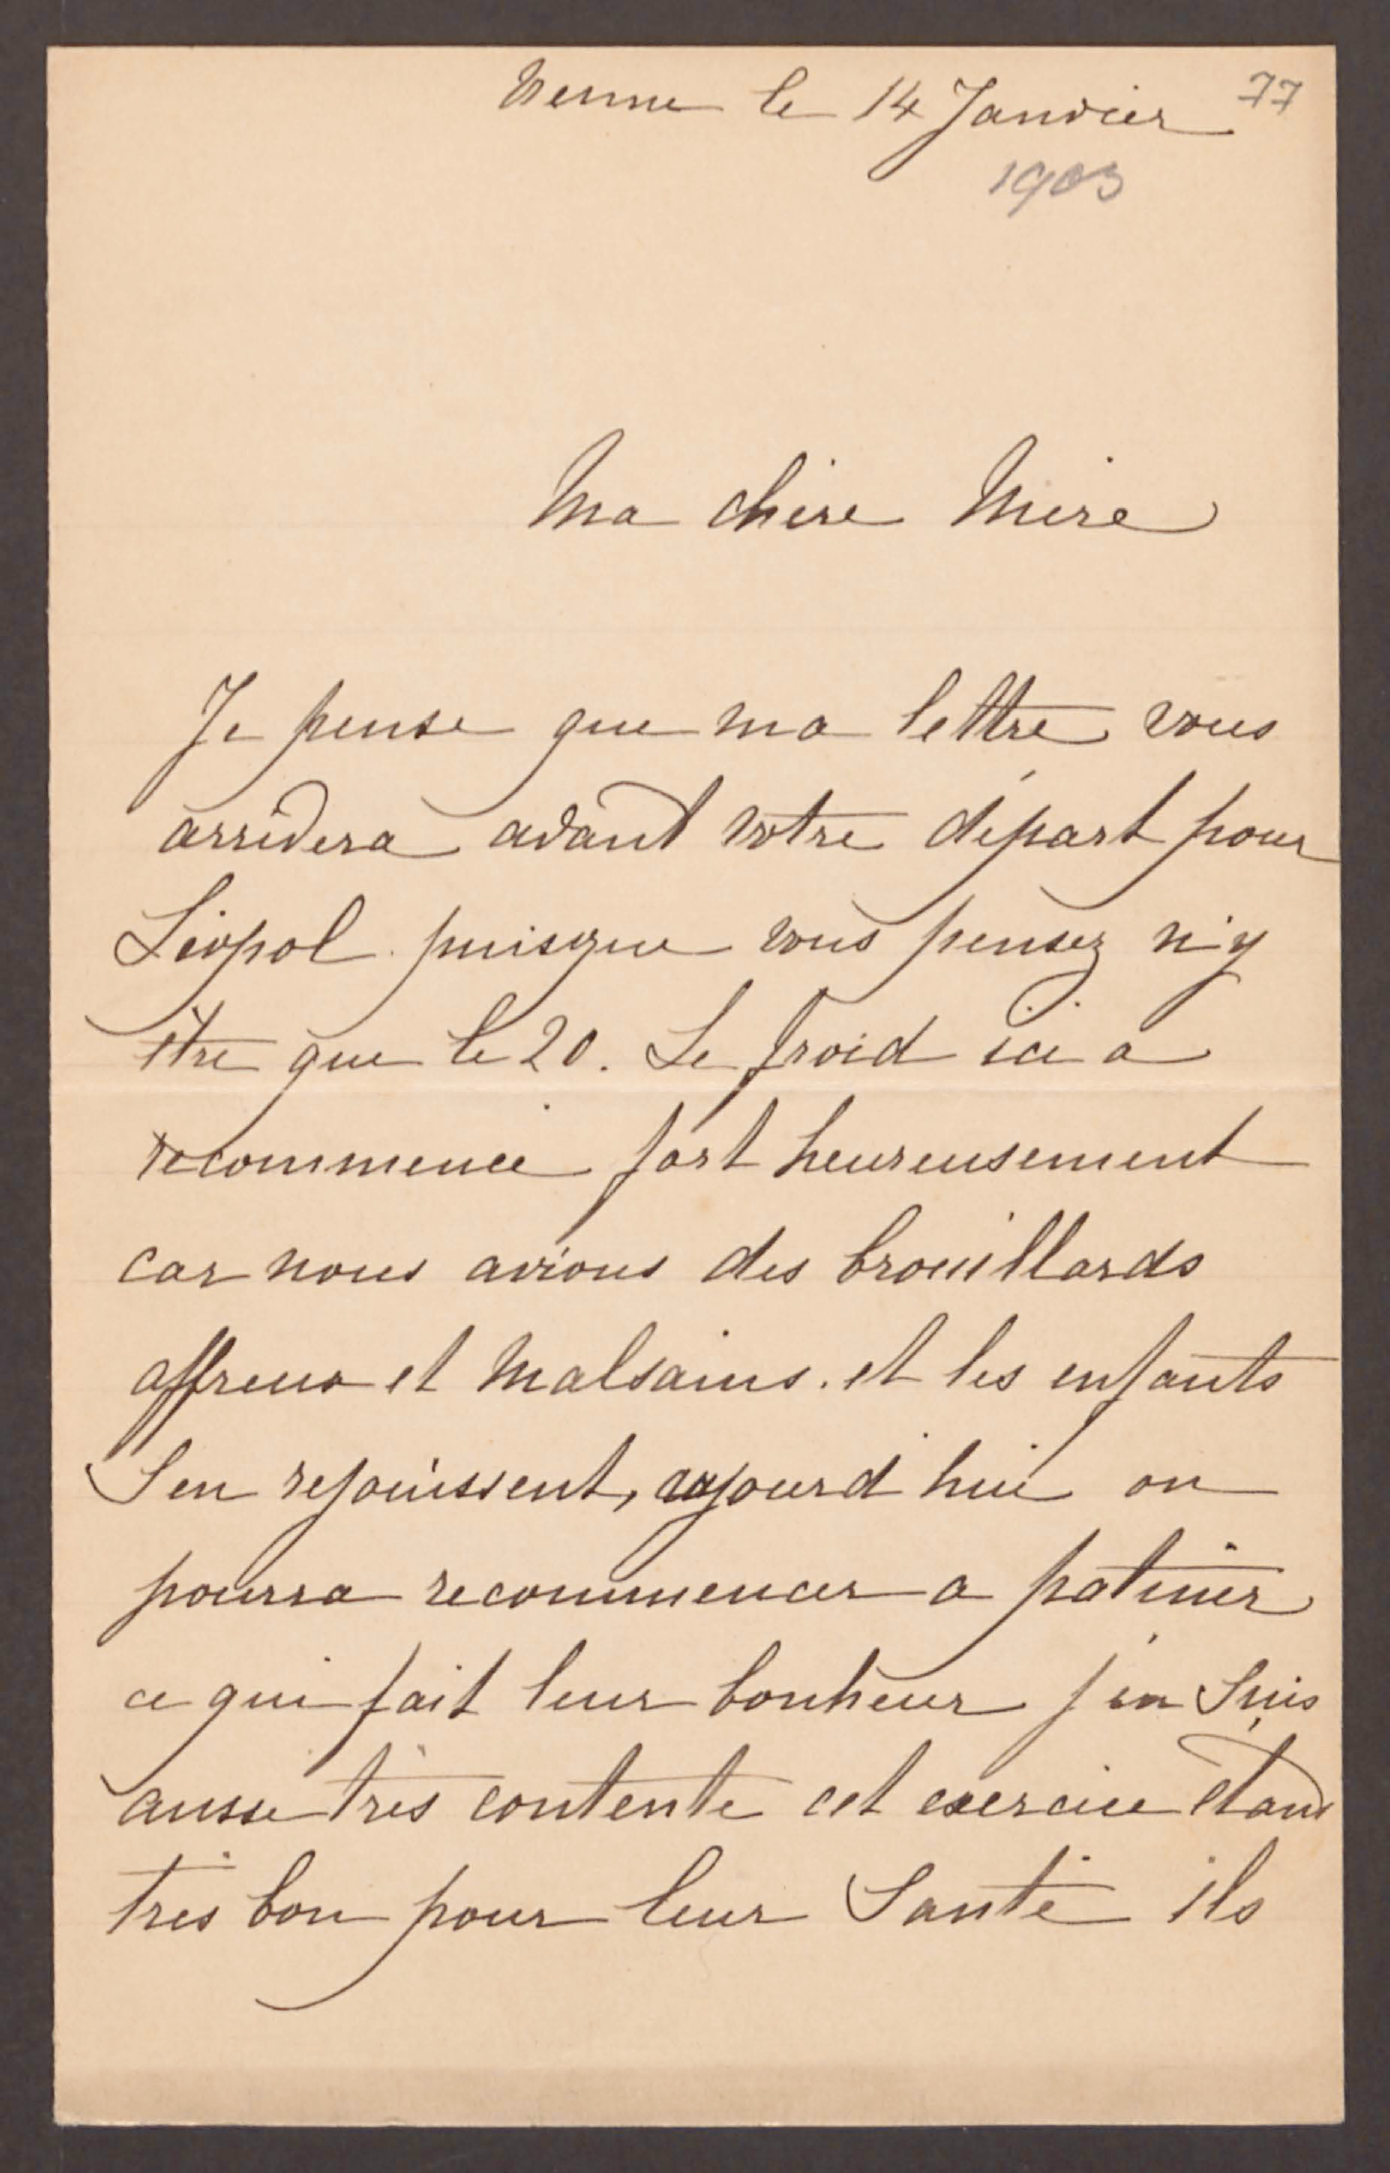 Vienne le 14 Janvier 77
1903
Ma chère Mère
Je pense que ma lettre vous
arrivera avant votre départ pour
Léopol puisque vous pensez n'y
être que le 20. Le froid ici a
recommencé fort heureusement
car nous avions des brouillards
affreux et malsains. et les enfants
s'en rejouissent, aujourd'hui on
pourra recommencer a patiner
ce qui fait leur bonheur j'en suis
aussi très contente cet exercice étant
très bon pour leur Santé ils